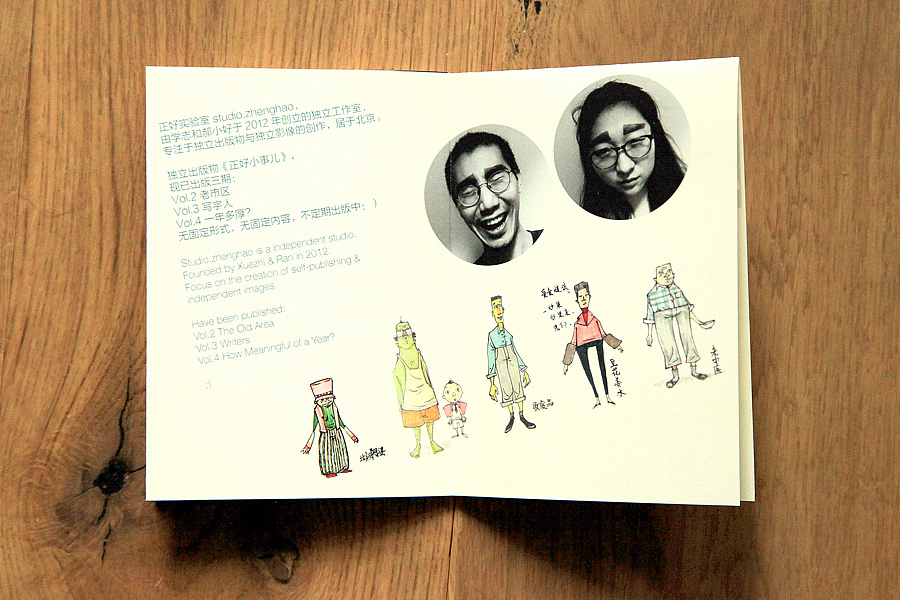 正好实验室 studio.zhenghao,
由学志和郝小好于 2012 年创立的独立工作室,
专注于独立出版物与独立影像的创作,居于北京。
独立出版物《正好小事儿》,
现已出版三期:
Vol.2 老市区
Vol.3 写字人
Vol.4 一年多厚?
无固定形式,无固定内容,不定期出版中:)
Studio.zhenghao is a independent studio.
Founded by Xuezhi & Ran in 2012.
Focus on the creation of self-publishing &
independent images.
Have been published:
Vol.2 The Old Area
Vol.3 Writers
Vol.4 How Meaningful of a Year?
:)
收废品
豆花香水
老中医